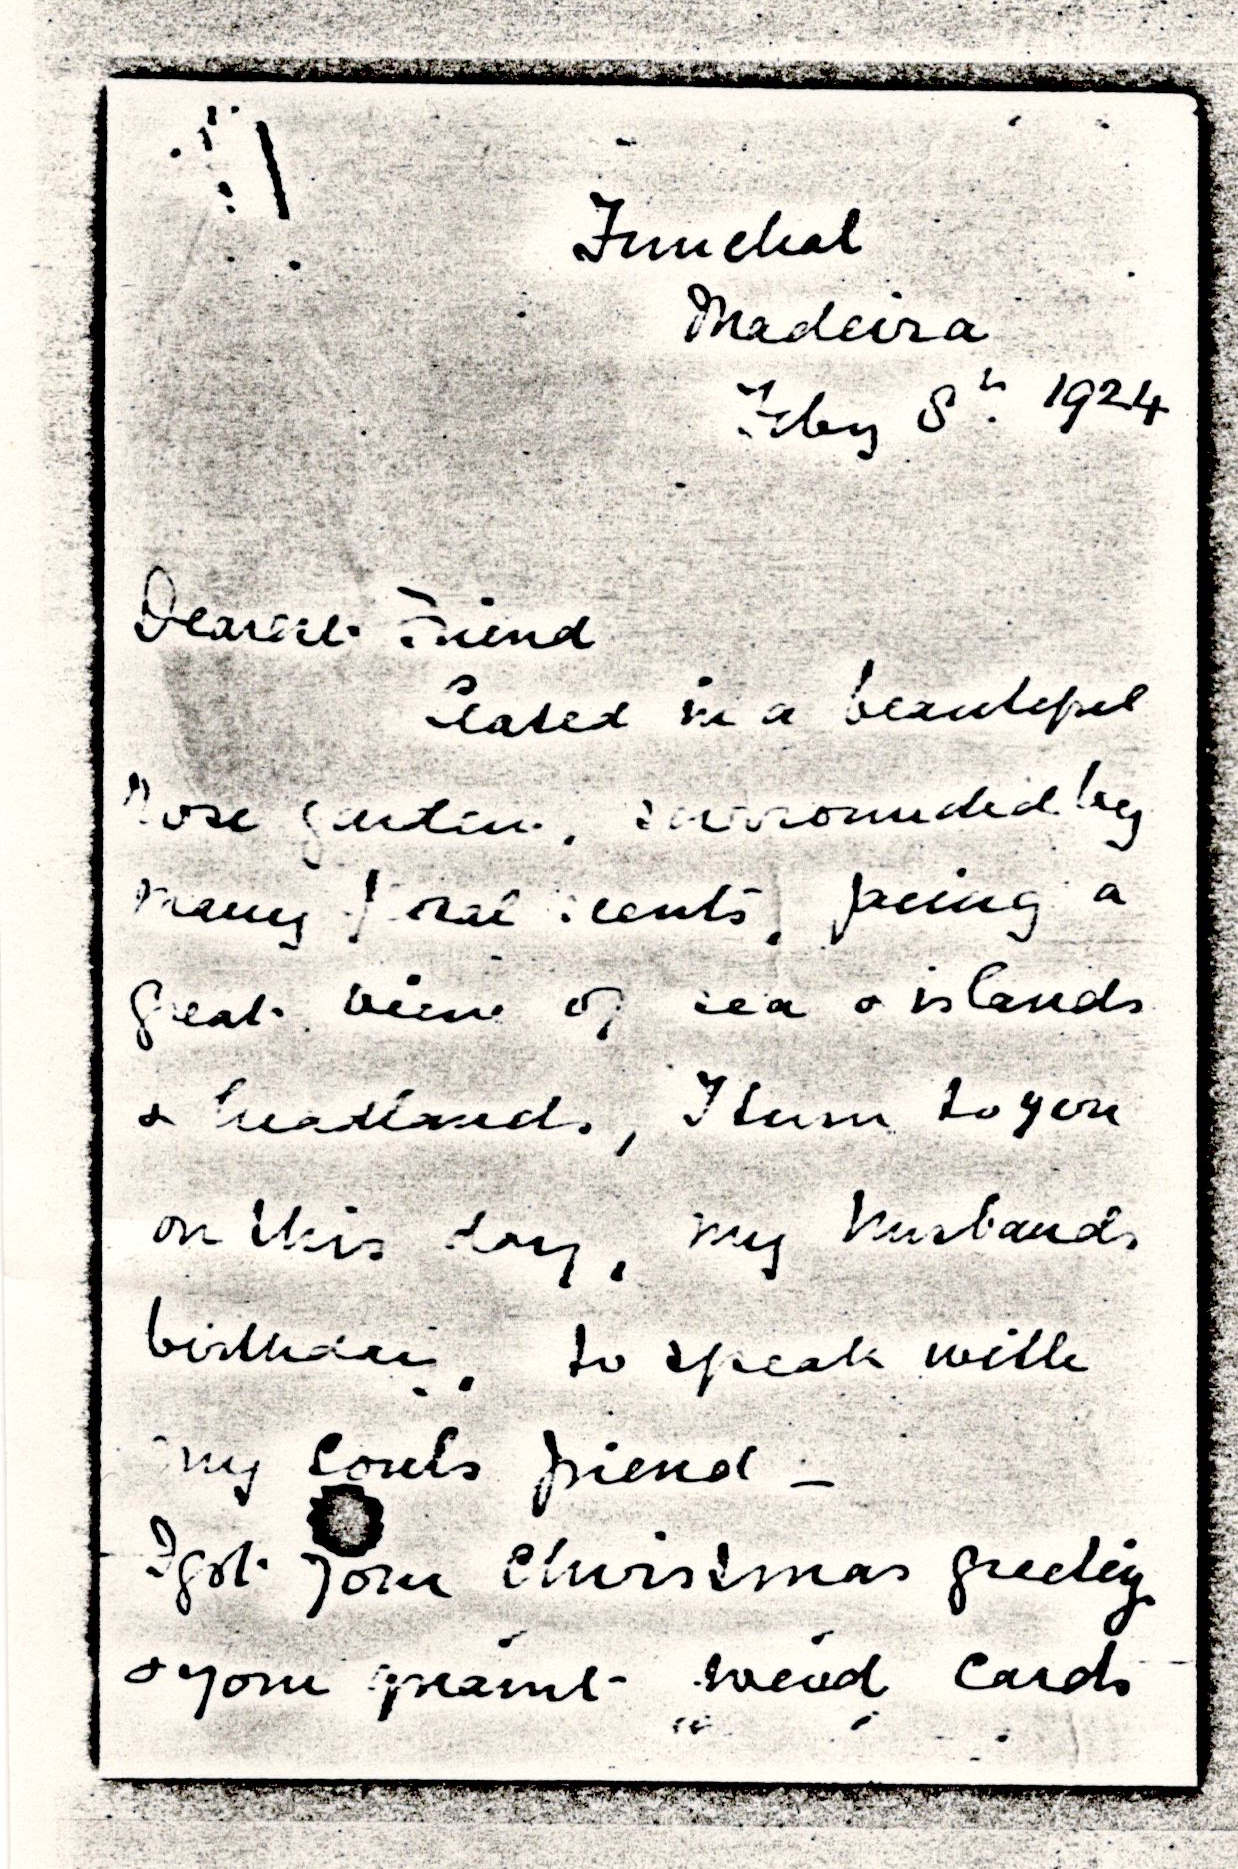 Funchal
Madeira
Feby 8th 1924
Dearest Friend
Seated in a beautiful
rose garden, surrounded by
many floral scents, facing a
great view of sea & islands
& headlands, I turn to you
on this day, my husbands
birthday, to speak with
my souls friend –
I got your Christmas greeting
& your quaint weird cards